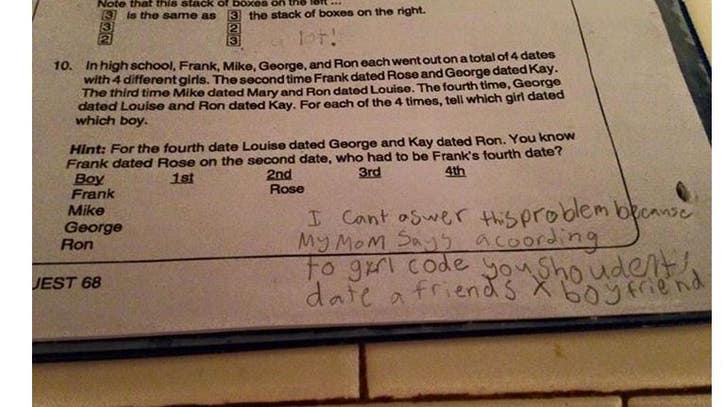 Note that this stack of boxes on the left ...
3 is the same as 3 the stack of boxes on the right.
3 2
2 3
a lot!
10. In high school, Frank, Mike, George, and Ron each went out on a total of 4 dates
with 4 different girls. The second time Frank dated Rose and George dated Kay.
The third time Mike dated Mary and Ron dated Louise. The fourth time, George
dated Louise and Ron dated Kay. For each of the 4 times, tell which girl dated
which boy.
Hint: For the fourth date Louise dated George and Kay dated Ron. You know
Frank dated Rose on the second date, who had to be Frank's fourth date?
Boy 1st 2nd 3rd 4th
Frank Rose
Mike
George
Ron
I cant aswer this problem because
My Mom Says acoording
to girl code you shoudent
date a friends X boyfriend
UEST 68